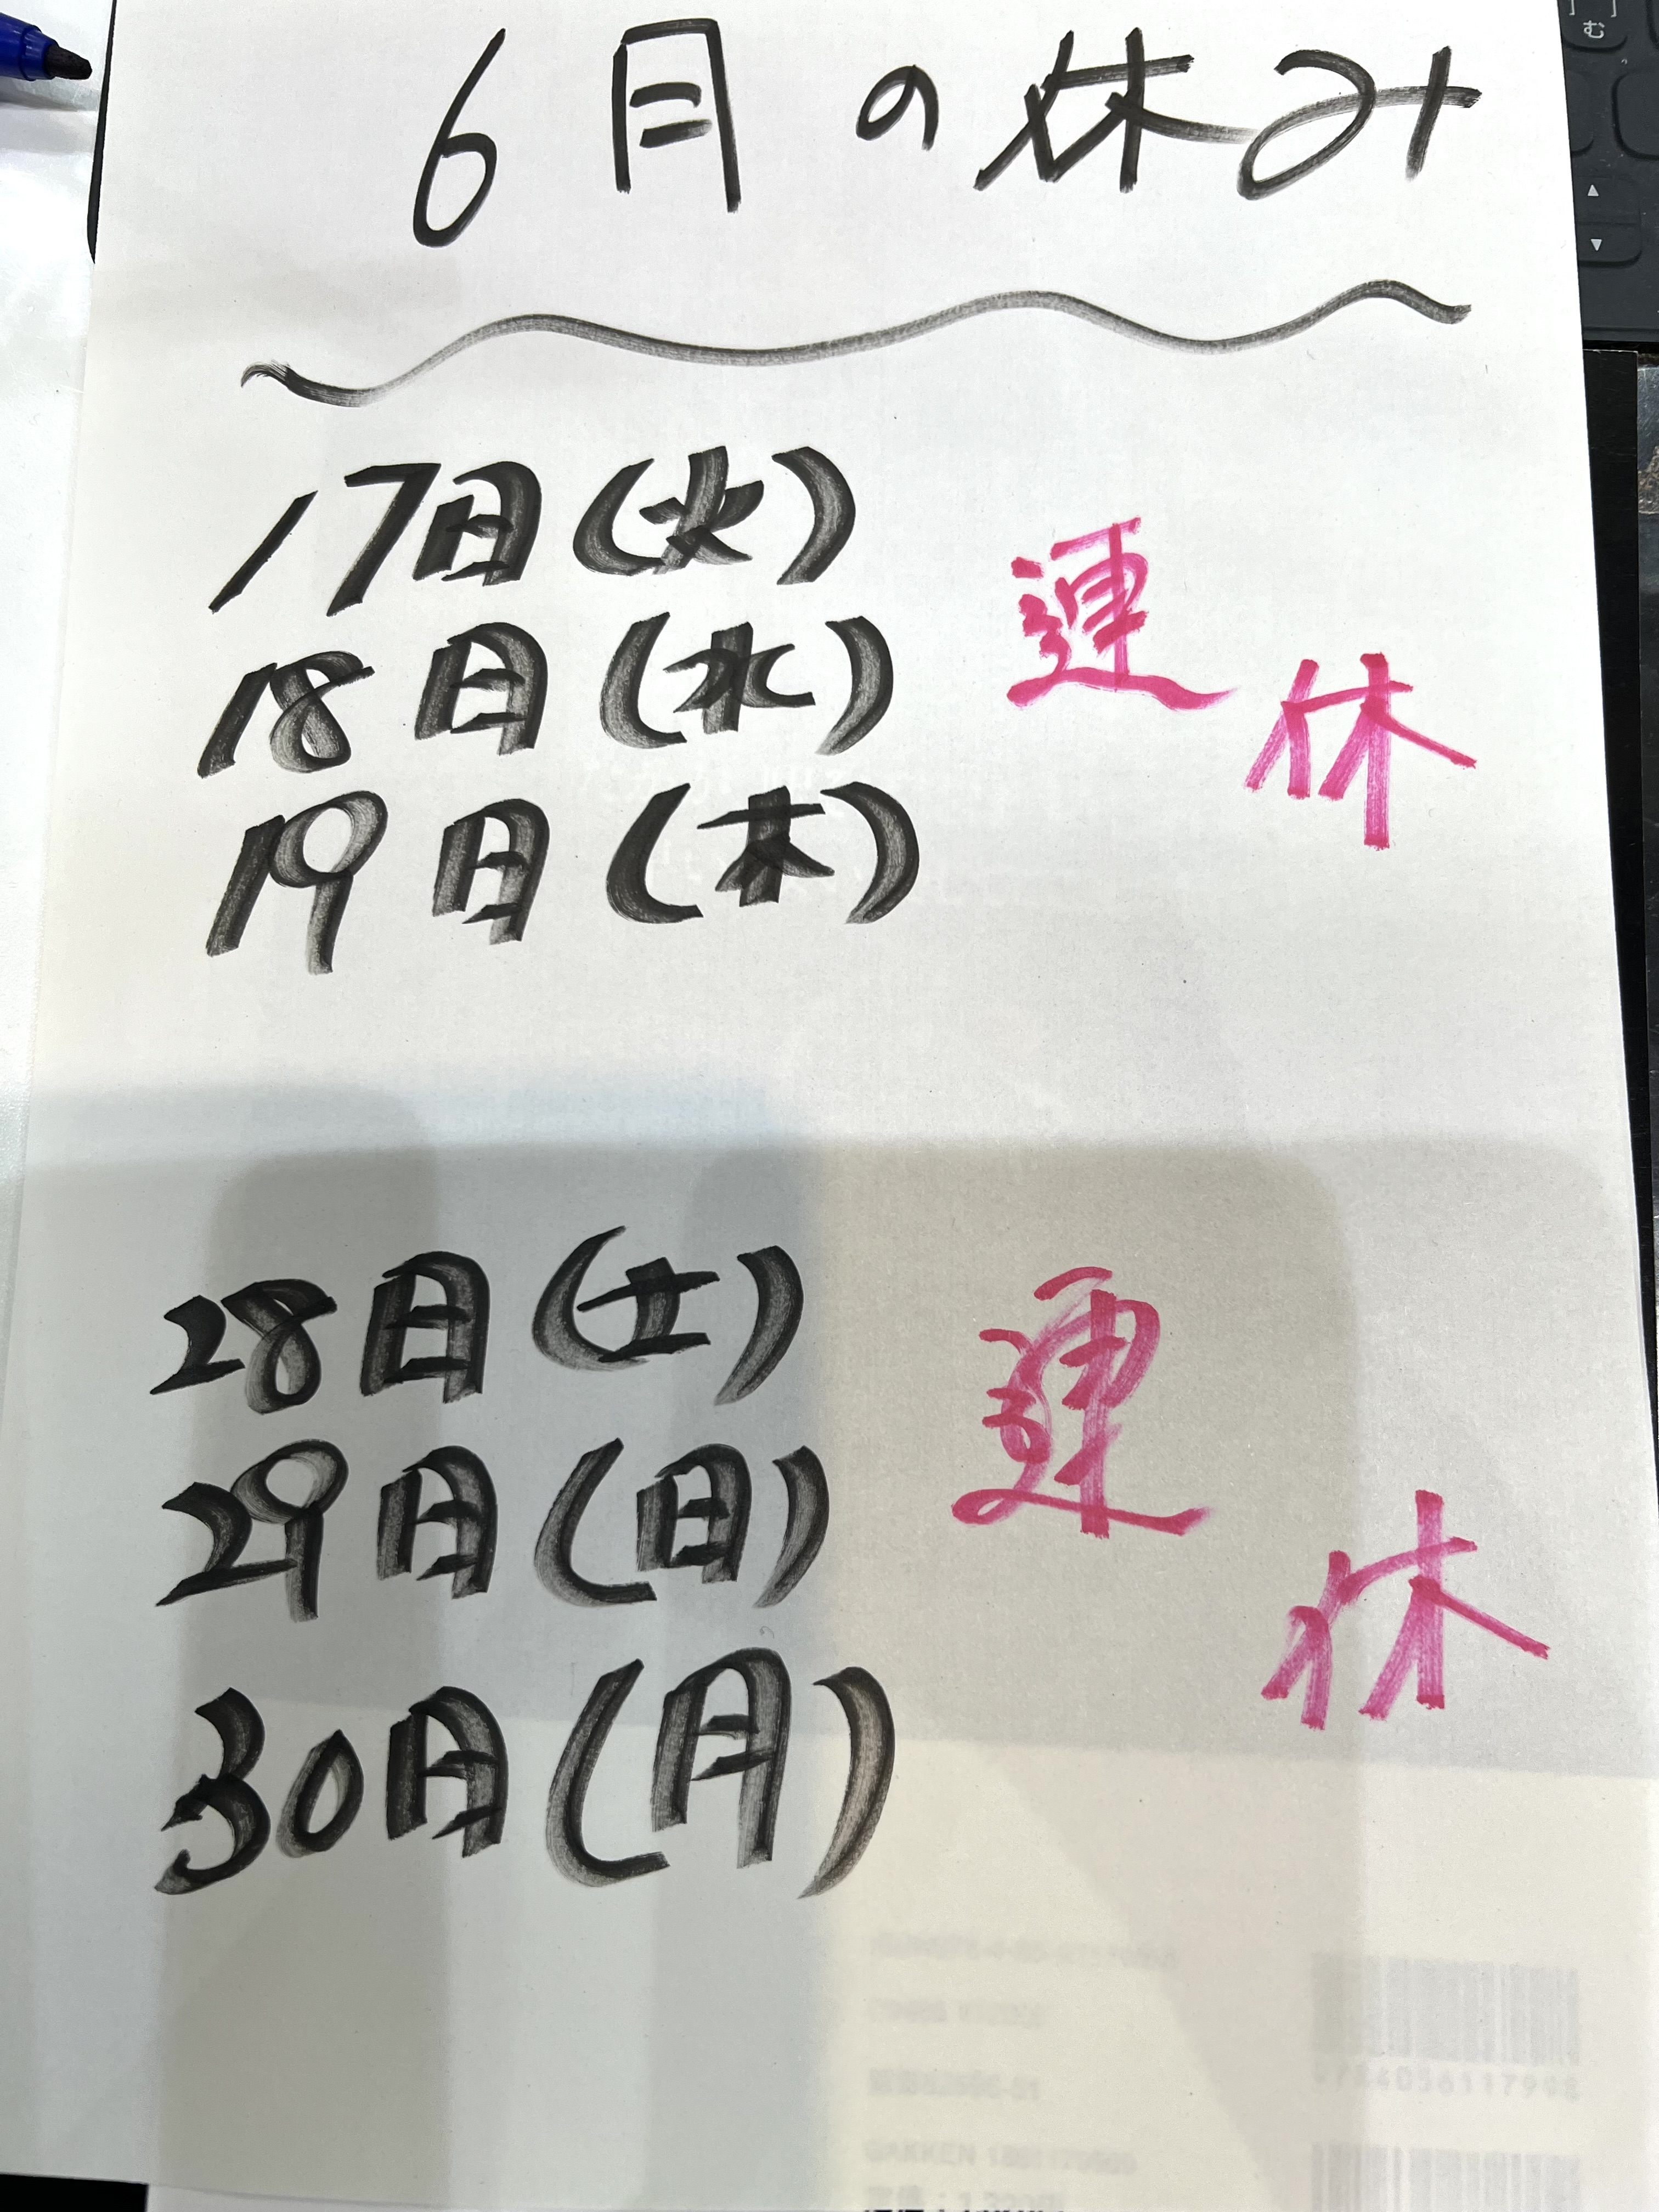 6月の休み
17日(火)
18日(水)
19日(木)
連休
28日(土)
29日(日)
30日(月)
連休
9784056117998
GAKKEN
む